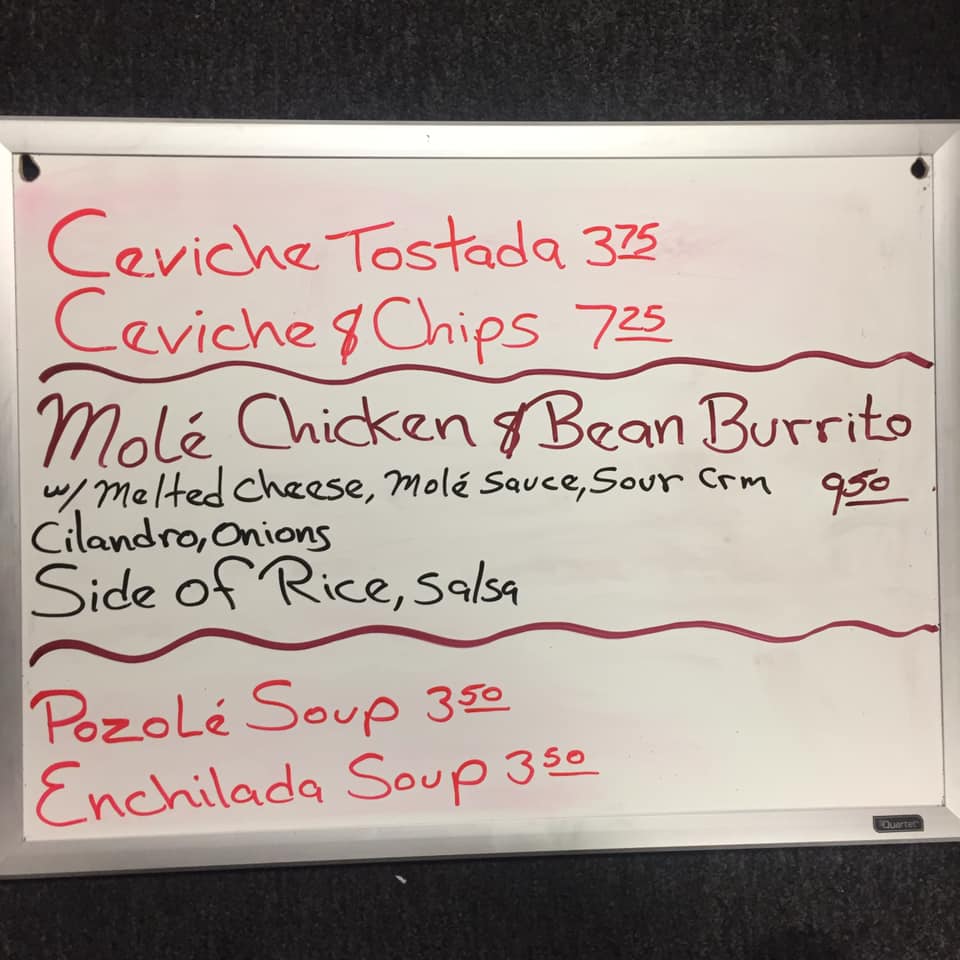 Ceviche Tostada 3.75
Ceviche & Chips 7.25
Molé Chicken & Bean Burrito
w/ Melted Cheese, Molé Sauce, Sour Crm 9.50
Cilantro, Onions
Side of Rice, Salsa
Pozolé Soup 3.50
Enchilada Soup 3.50
Quartet